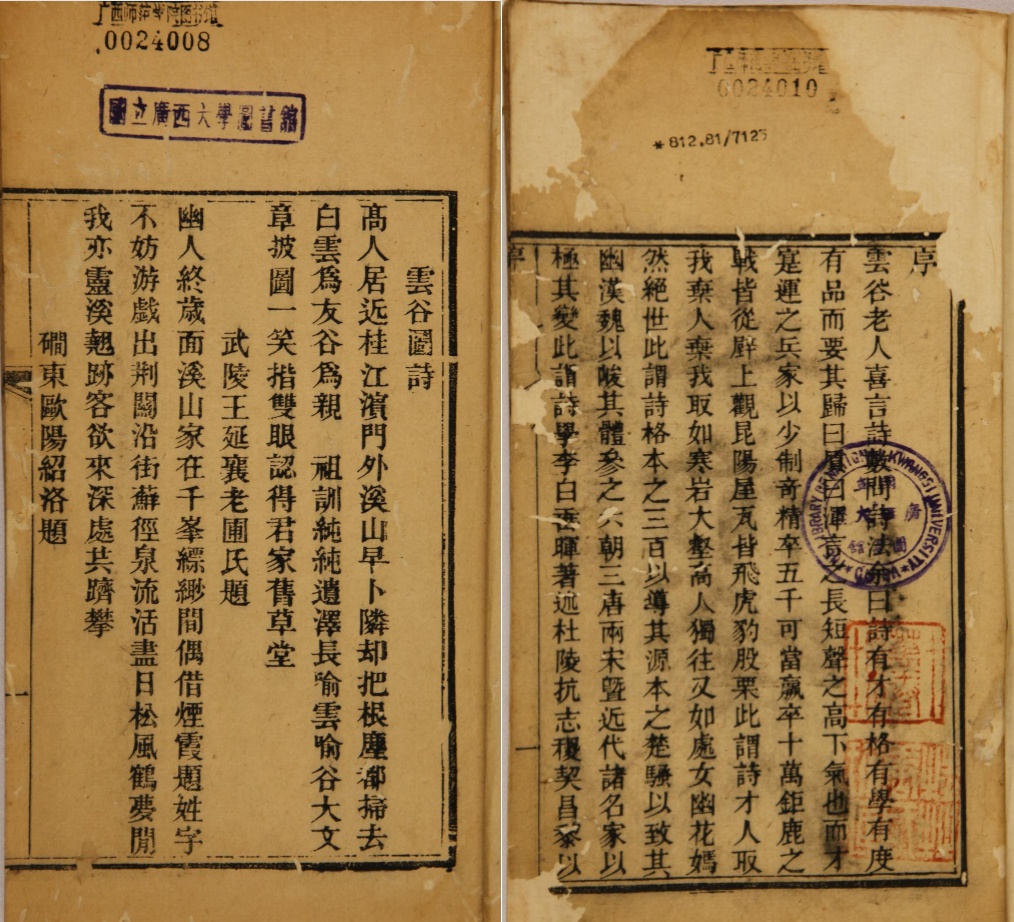 广西师范学院图书馆
0024008
國立廣西大學圖書館
雲谷圖詩
高人居近桂江濱門外溪山早卜隣却把根塵都掃去
白雲爲友谷爲親　祖訓純純遺澤長喻雲喻谷大文
章披圖一笑指雙眼認得君家舊草堂
武陵王延襄老圃氏題
幽人終歲面溪山家在千峯縹緲間偶借煙霞題姓字
不妨游戲出荆關沿街蘚徑泉流活盡日松風鶴夢閒
我亦靈溪翹跡客欲來深處共躋攀
磵東歐陽紹洛題
一
0024010
*812.81/7125
序
雲谷老人喜言詩數問詩法余曰詩有才有格有學有度
有品而要其歸曰厚曰渾言之長短聲之高下氣也而才
寔運之兵家以少制奇精卒五千可當羸卒十萬鉅鹿之
戰皆從壁上觀昆陽屋瓦皆飛虎豹股栗此謂詩才人取
我棄人棄我取如寒岩大壑高人獨往又如處女幽花嫣
然絕世此謂詩格本之三百以導其源本之楚騷以致其
幽漢魏以峻其體參之六朝三唐兩宋曁近代諸名家以
極其變此謂詩學李白垂暉著述杜陵抗志稷契昌黎以
序
一
LIBRARY OF NATIONAL KWANGSI UNIVERSITY